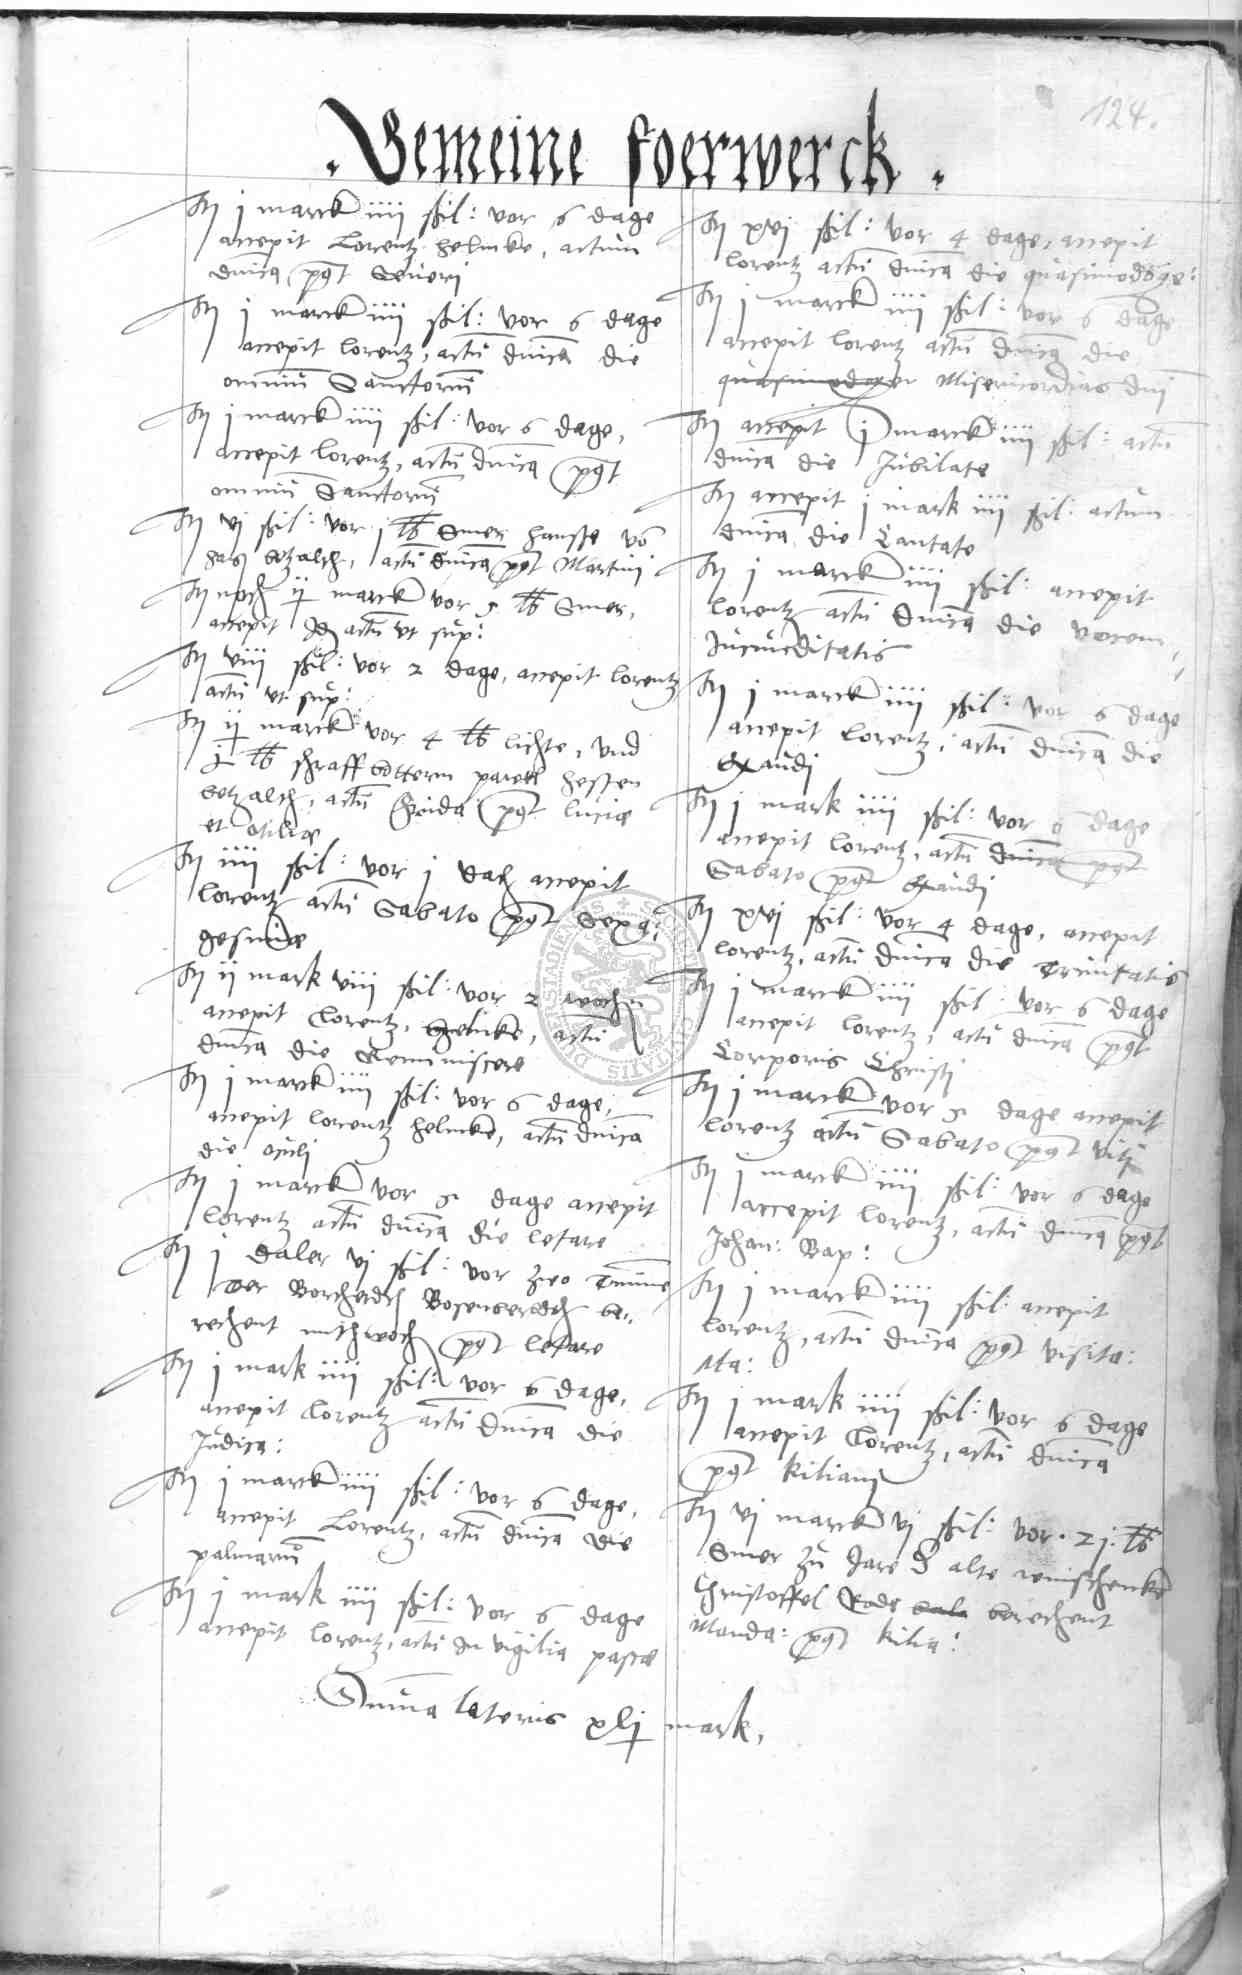 124.
. Gemeine foerwerck .
It j marck iiij ßil: vor 6 dage
accepit Lorentz helmke, actum
dnica pqt Seueri
It j marck iiij ßil: vor 6 dage
accepit lorentz, actu dnica die
omniu Sanctorum
It j marck iiij ßil: vor 6 dage,
accepit lorentz, actu dnica pqt
omniu Sanctoru
It vj ßil: vor j lb Smer
betzalt, actu dnica pqt Martini
It noch ij marck vor 5 lb Smer,
accepit Id actu vt sup:
It viij ßil: vor 2 dage, accepit lorentz
actu vt sup:
It ij marck vor 4 lb lichte, vnd
j lb botternn
betzalt, actu pqt lucie
et otilie
It iiij ßil: vor j dach accepit
lorentz actu Sabato pqt Sexa:
gesime
It ij mark viij ßil: vor 2 wochn
accepit lorentz, helmke, actu
dnica die Reminiscere
It j marck iiij ßil: vor 6 dage,
accepit lorentz helmke, actu dnica
die oculj
It j marck vor 5 dage accepit
lorentz actu dnica die letare
It j daler vj ßil: vor zwo
Der Borcherdt be:
rechent mithwoch pqt letare
It j mark iiij ßil: vor 6 dage,
accepit lorentz actu dnica die
Judica:
It j marck iiij ßil: vor 6 dage,
accepit Lorentz, actu dnica die
palmaru
It j mark iiij ßil: vor 6 dage
accepit lorentz, actu In vigilia pasce
It xvj ßil: vor 4 dage, accepit
lorentz actu dnica die quasimodoge:
It j marck iiij ßil: vor 6 dage
accepit lorentz actu dnica die
Misericordias dnj
It accepit j marck iiij ßil: actu
dnica die Jubilate
It accepit j mark iiij ßil: actum
dnica die Cantate
It j marck iiij ßil: accepit
lorentz actu dnica die vocem
Jucunditatis
It j marck iiij ßil: vor 6 dage
accepit lorentz, actu dnica die
Exaudj
It j mark iiij ßil: vor 6 dage
accepit lorentz, actu dnica pqt
Sabato pqt Exaudj
It xvj ßil: vor 4 dage, accepit
lorentz, actu dnica die Trinitatis
It j marck iiij ßil: vor 6 dage
accepit lorentz, actu dnica pqt
Corporis Christj
It j marck vor 5 dage accepit
lorentz actu Sabato pqt vitj
It j marck iiij ßil: vor 6 dage
accepit lorentz, actu dnica pqt
Johan: Bap:
It j marck iiij ßil: accepit
lorentz, actu dnica pqt visita:
Ma:
It j mark iiij ßil: vor 6 dage
accepit lorentz, actu dnica
pqt kilianj
It vj marck vj ßil: vor . 21. lb
Smer zu Jare alte winschenke
Christoffel Rode berechent
Manda: pqt kilia:
Suma lateris xlj mark,